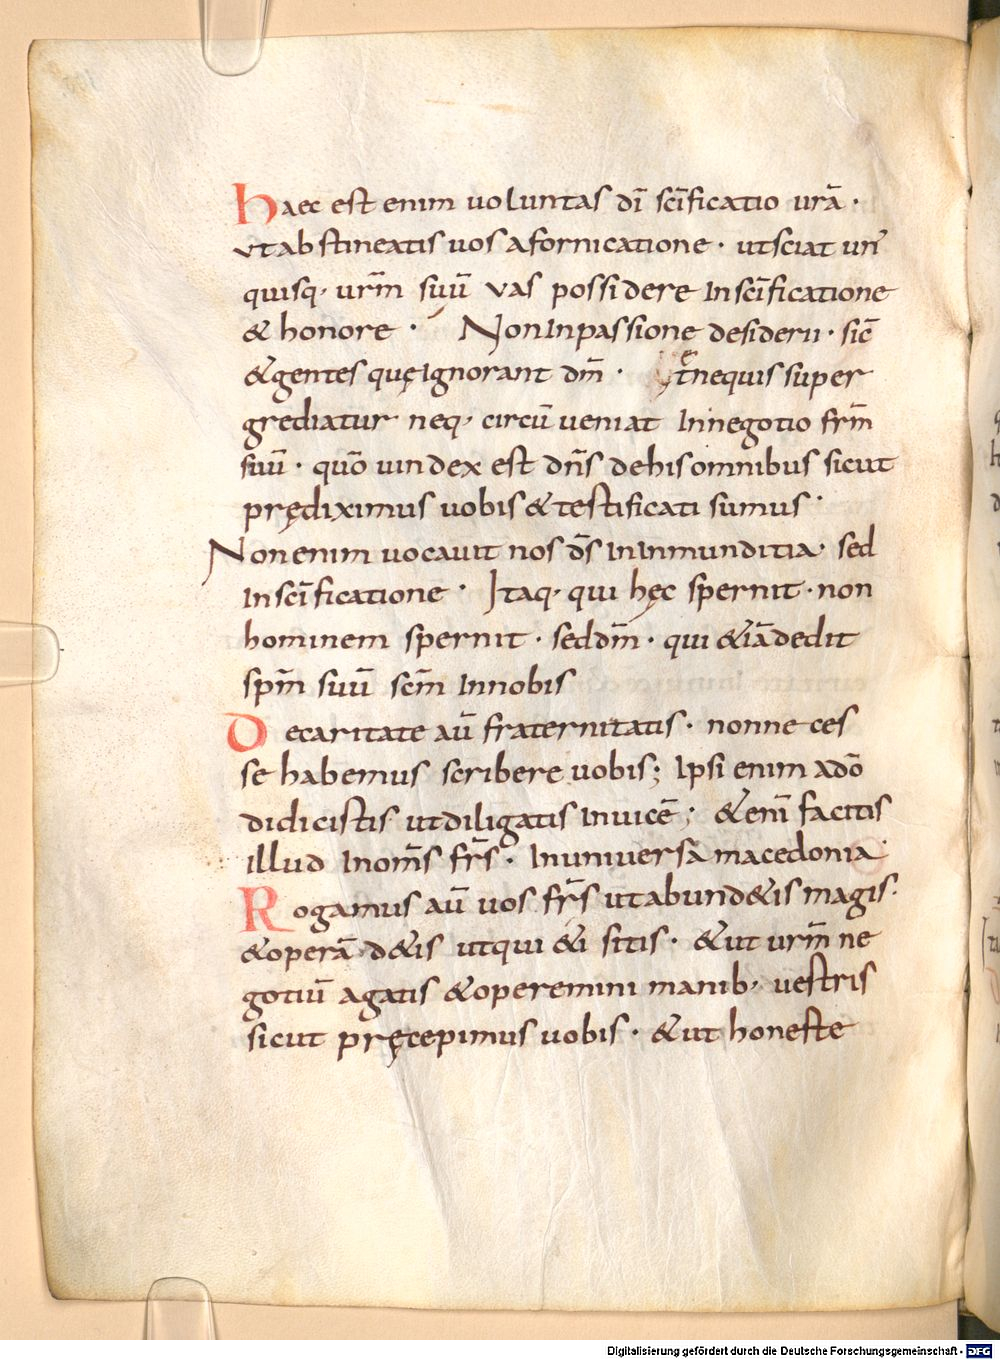 Haec est enim uoluntas dī scīficatio urā ·
vt abstineatis uos a fornicatione · ut sciat un̄
quisq· urm̄ suū vas possidere In scīficatione
& honore · Non In passione desiderii · sic̄
& gentes quę Ignorant dm̄ · Et ne quis super
grediatur neq· circū ueniat In negotio frm̄
suū · quō uindex est dn̄s de his omnibus sicut
prędiximus uobis & testificati sumus ·
Non enim uocauit nos ds̄ In Inmunditia · sed
In scīficatione · Itaq· qui hęc spernit · non
hominem spernit · sed dm̄ · qui &iā dedit
spm̄ suū scm̄ In nobis
De caritate aū fraternitatis · non neces
se habemus scribere uobis; Ipsi enim adō
didicistis ut diligatis Inuicē; & enī facitis
illud In om̄s frs̄ · In uniuersā macedonia ·
Rogamus aū uos frs̄ ut abund&is magis ·
& operā d&is ut qui&i sitis · & ut urm̄ ne
gotiū agatis & operemini manib· uestris
sicut pręcepimus uobis · & ut honeste
Digitalisierung gefördert durch die Deutsche Forschungsgemeinschaft - DFG